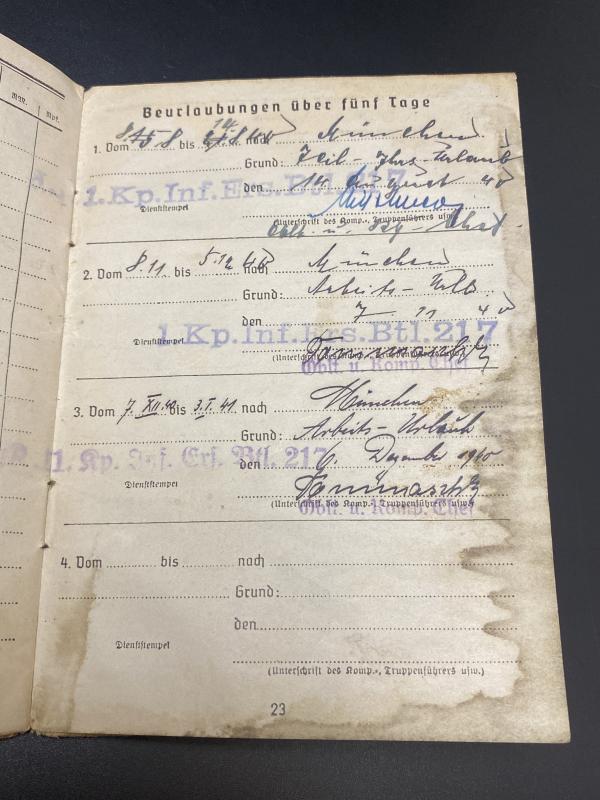 Mon. Mpt.
Beurlaubungen über fünf Tage
1. Vom 8 bis 8.40 nach München
Grund: Teil- Urlaub
den 14 August 40
1. Kp. Inf. Ers. Btl. 217
Dienststempel
(Unterschrift des Komp.-, Truppenführers usw.)
Oblt. u.
2. Vom 8.11 bis 5.12.40 nach München
Grund: Arbeits-Urlb.
den 7 11 40
1. Kp. Inf. Ers. Btl. 217
Dienststempel
(Unterschrift des Komp.-, Truppenführers usw.)
Oblt. u. Komp. Chef
3. Vom 7. XII.40 bis 3.I.41 nach München
Grund: Arbeits-Urlaub
den 6 Dezember 1940
1. Kp. Inf. Ers. Btl. 217
Dienststempel
(Unterschrift des Komp.-, Truppenführers usw.)
Oblt. u. Komp. Chef
4. Vom bis nach
Grund:
den
Dienststempel
(Unterschrift des Komp.-, Truppenführers usw.)
23